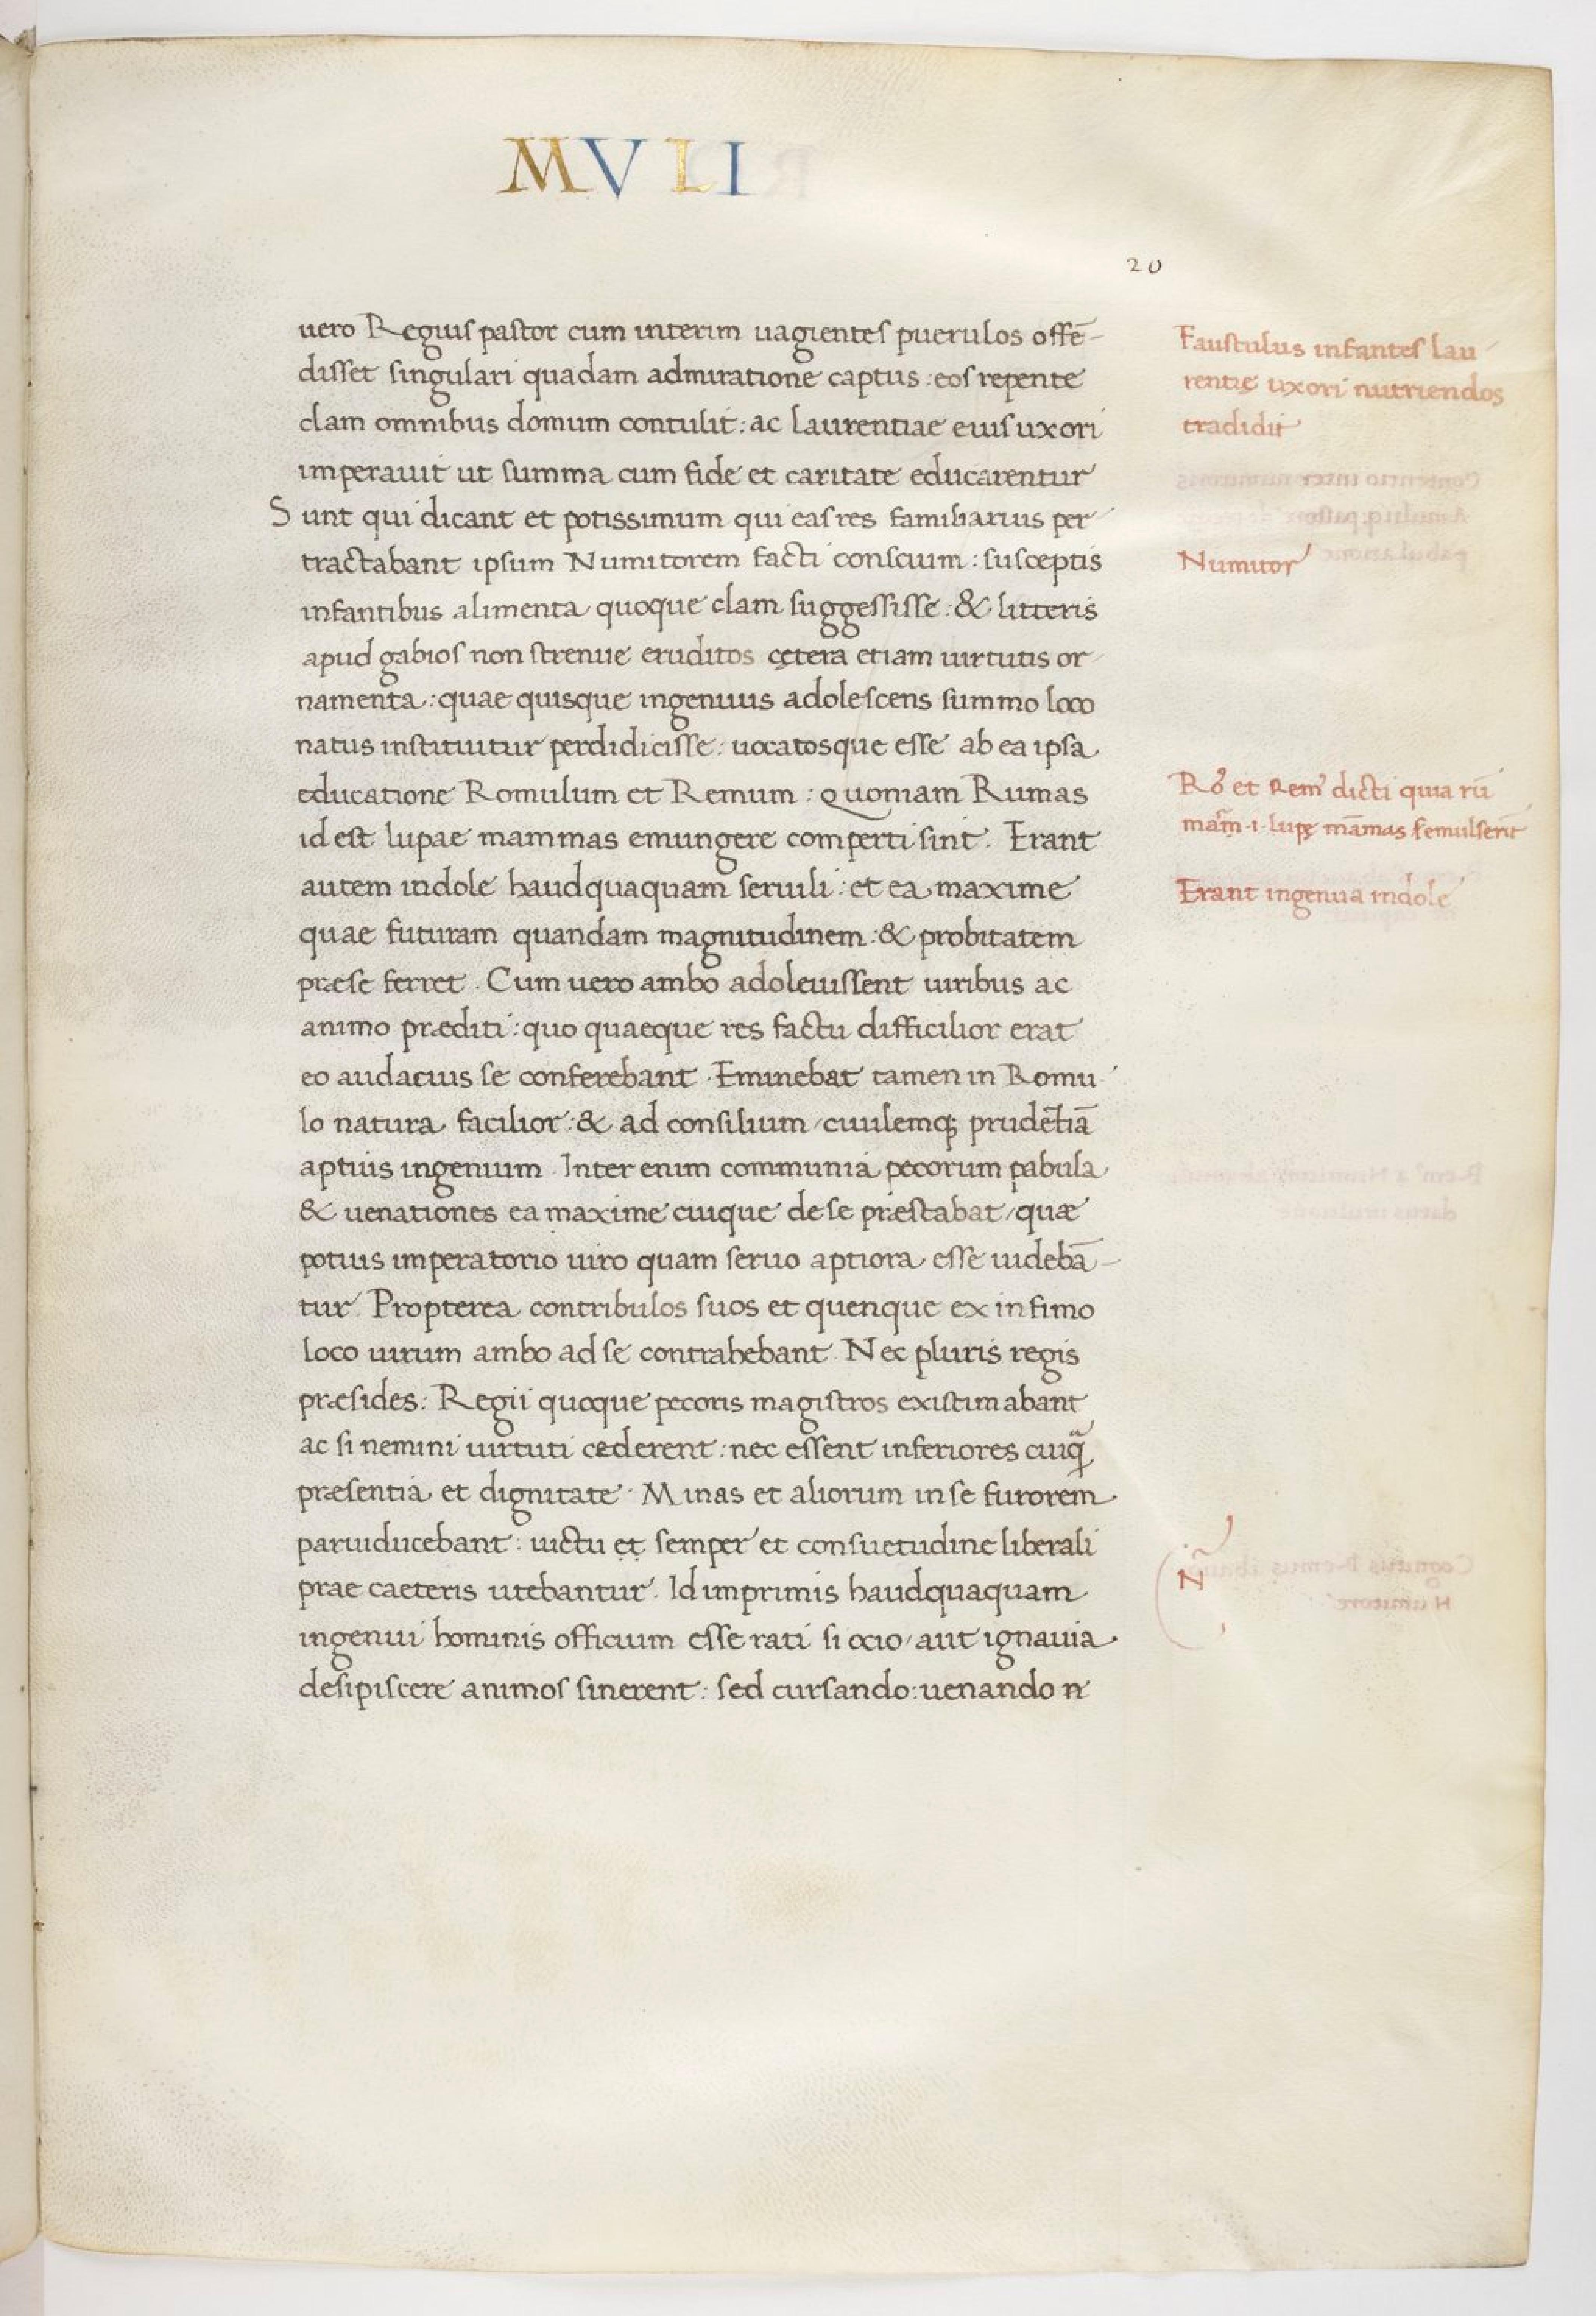 MVLI
20
uero Regius pastor cum interim uagientes puerulos offē-
disset singulari quadam admiratione captus: eos repente
clam omnibus domum contulit: ac Laurentiae eius uxori
imperauit ut summa cum fide et caritate educarentur
Sunt qui dicant et potissimum qui eas res familiarius per
tractabant ipsum Numitorem facti conscium: susceptis
infantibus alimenta quoque clam suggessisse: & litteris
apud gabios non strenue eruditos cętera etiam uirtutis or
namenta: quae quisque ingenuus adolescens summo loco
natus instituitur perdidicisse: uocatosque esse ab ea ipsa
educatione Romulum et Remum: Quoniam Rumas
id est lupae mammas emungere comperti sint. Erant
autem indole haudquaquam seruili: et ea maxime
quae futuram quandam magnitudinem: & probitatem
præ se ferret. Cum uero ambo adoleuissent uiribus ac
animo præditi: quo quaeque res factu difficilior erat
eo audacius se conferebant. Eminebat tamen in Romu
lo natura facilior: & ad consilium / ciuilemq; prudētiā
aptius ingenium. Inter enim communia pecorum pabula
& uenationes ea maxime cuique de se præstabat / quæ
potius imperatorio uiro quam seruo aptiora esse uidebā-
tur. Propterea contribulos suos et quenque ex infimo
loco uirum ambo ad se contrahebant. Nec pluris regis
præsides: Regii quoque pecoris magistros existimabant
ac si nemini uirtuti cederent: nec essent inferiores cuiq̄
præsentia et dignitate. Minas et aliorum in se furorem
paruiducebant: uictu et semper et consuetudine liberali
prae caeteris utebantur. Id imprimis haudquaquam
ingenui hominis officium esse rati si ocio / aut ignauia
desipiscere animos sinerent: sed cursando: uenando n̄
Faustulus infantes lau
rentię uxori nutriendos
tradidit
Numitor
Ro' et Rem' dicti quia rū
mam .i. lupę māmas femulserīt
Erant ingenua indole
Ñ